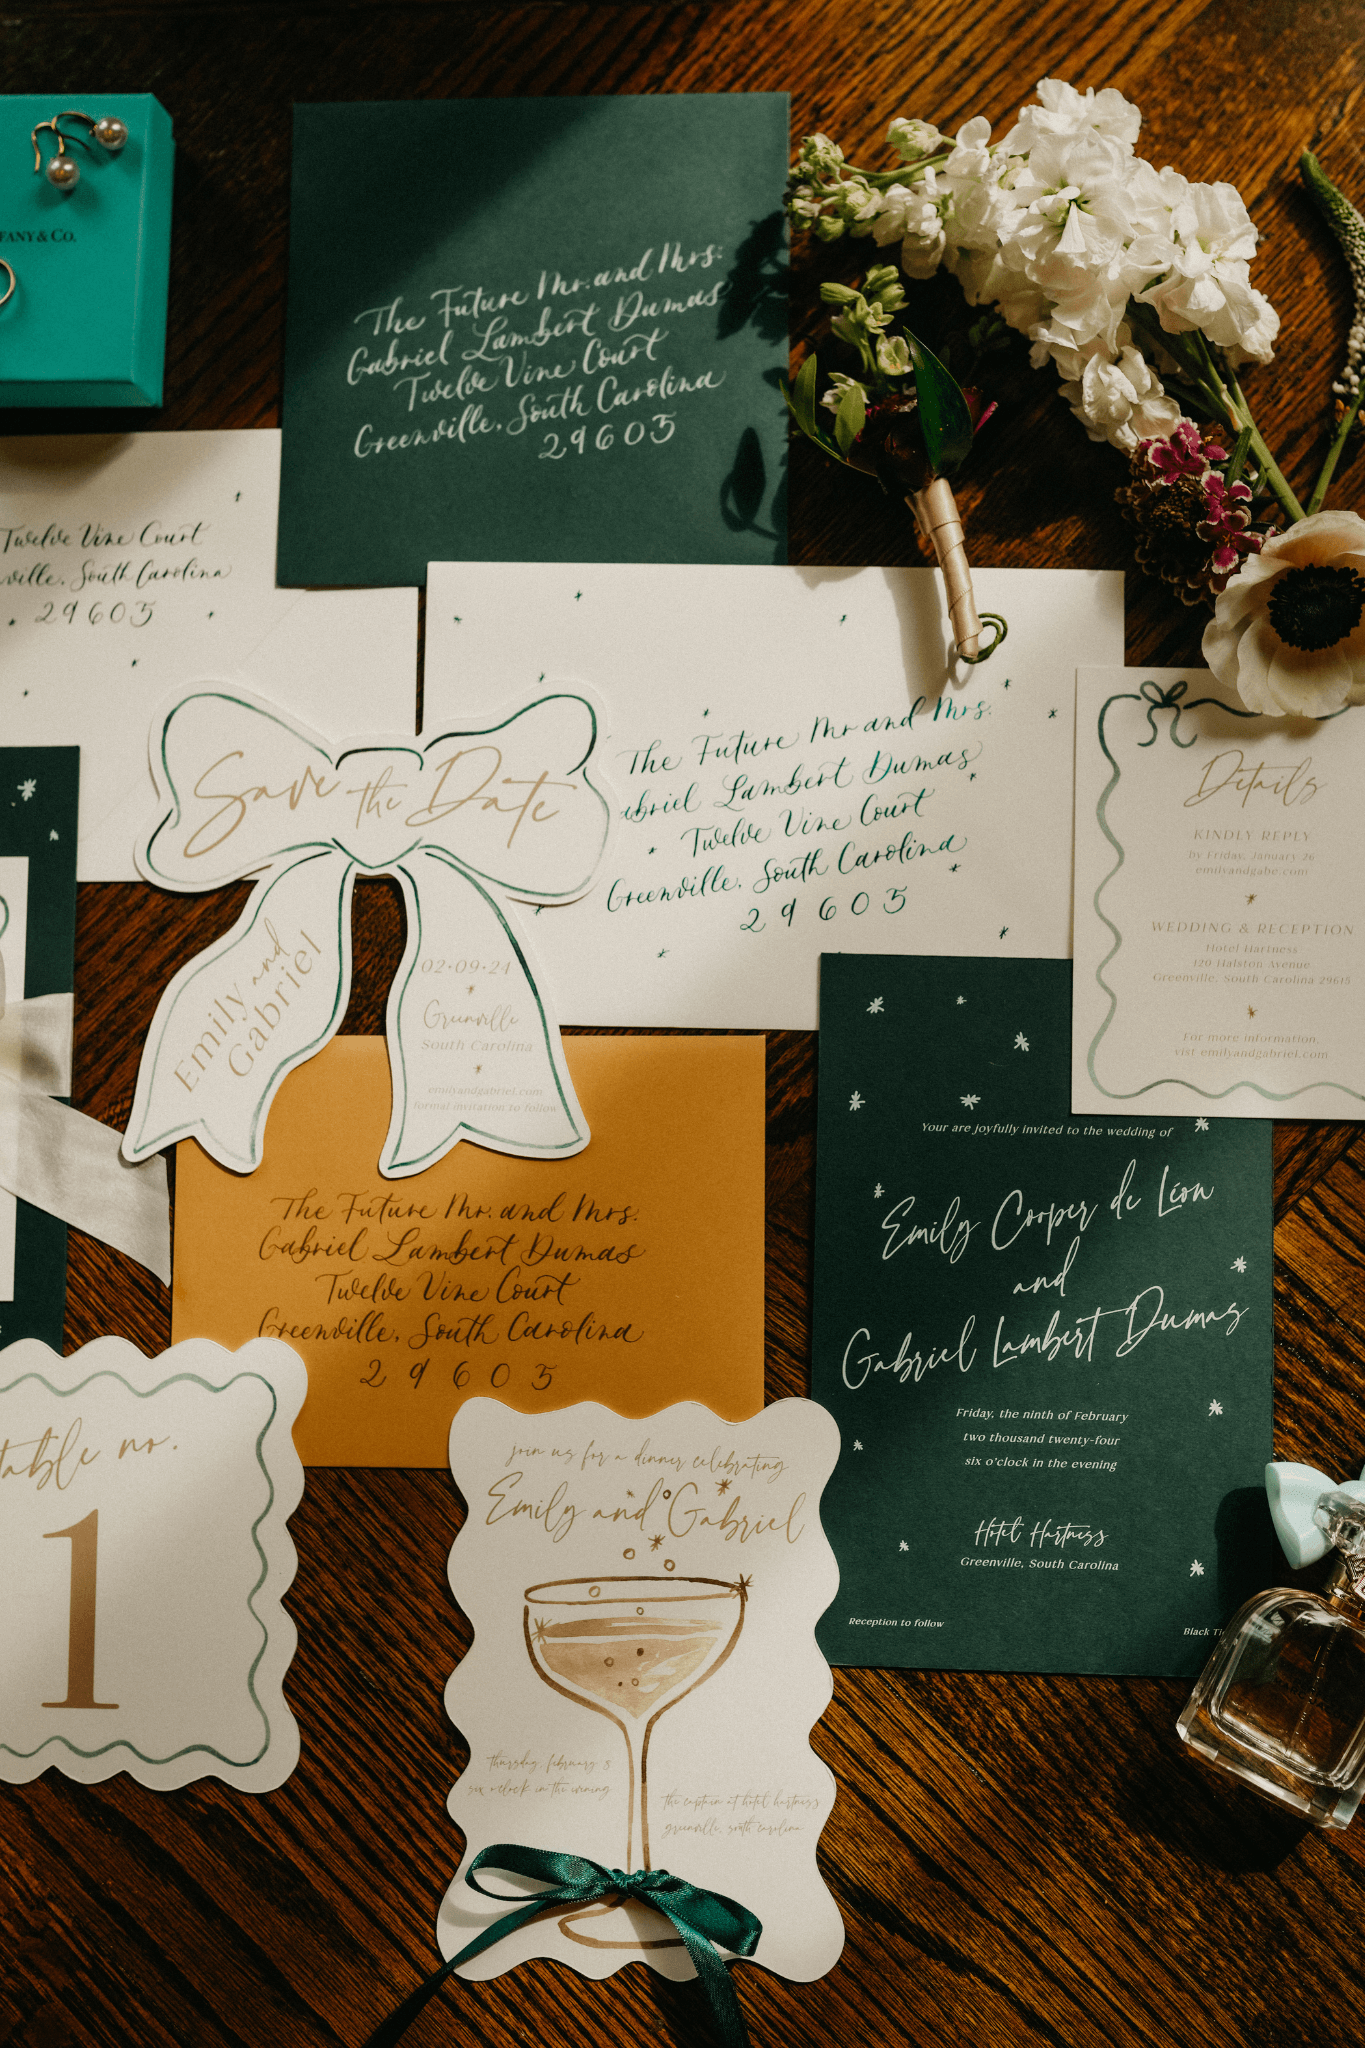 FANY & CO.
The Future Mr. and Mrs.
Gabriel Lambert Dumas
Twelve Vine Court
Greenville, South Carolina
29605
Twelve Vine Court
ville, South Carolina
29605
The Future Mr and Mrs.
abriel Lambert Dumas
Twelve Vine Court
Greenville, South Carolina
29605
Save the Date
Emily and
Gabriel
02•09•24
Greenville
South Carolina
emilyandgabriel.com
formal invitation to follow
Details
KINDLY REPLY
by Friday, January 26
emilyandgabe.com
WEDDING & RECEPTION
Hotel Hartness
120 Halston Avenue
Greenville, South Carolina 29615
For more information,
visit emilyandgabriel.com
The Future Mr. and Mrs.
Gabriel Lambert Dumas
Twelve Vine Court
Greenville, South Carolina
29605
Your are joyfully invited to the wedding of
Emily Cooper de Léon
and
Gabriel Lambert Dumas
Friday, the ninth of February
two thousand twenty-four
six o'clock in the evening
Hotel Hartness
Greenville, South Carolina
Reception to follow
Black Ti
table no.
1
join us for a dinner celebrating
Emily and Gabriel
thursday, february 8
six o'clock in the evening
the captain at hotel hartness
greenville, south carolina